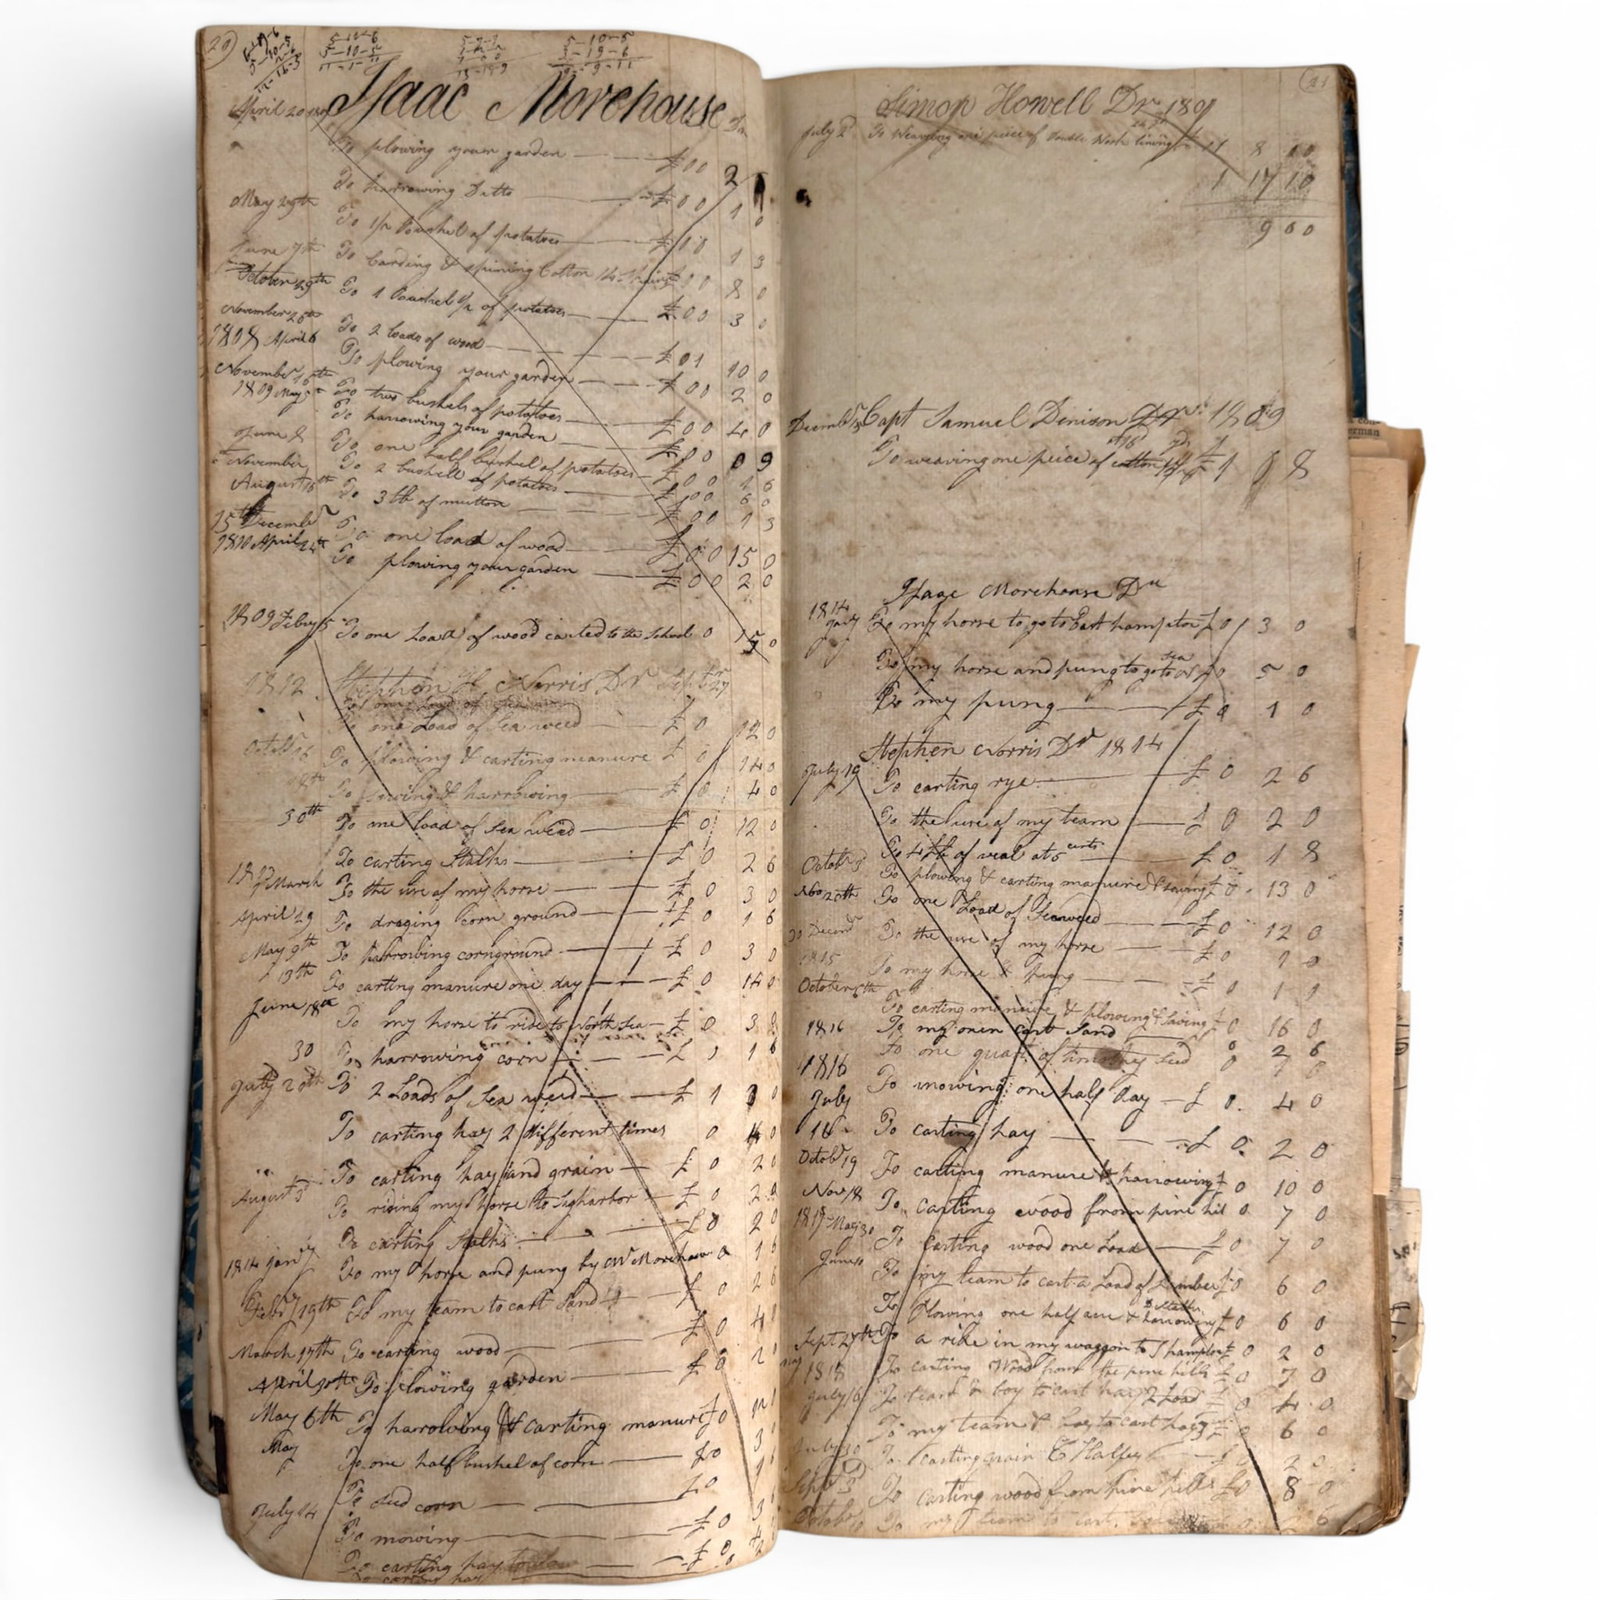 20
5-10-6
3-10-5
5-10-5
3-19-6
9-9-11
Isaac Morehouse Dr
April 20
To plowing your garden £00 2
To harrowing Ditto £00 1 0
May 29th
To 1/2 Bushel of potatoes £00 1 3
June 7th To Carding & spining Cotton 00 8 0
October 29th To 1 Bushel 1/2 of potatoes £00 3 0
November 26th To 2 loads of wood £01 10 0
1808 April 6 To plowing your garden £00 2 0
November 16th To two bushels of potatoes £00 4 0
1809 May To harrowing your garden £00 0 9
June 8 To one half bushel of potatoes £00 1 6
November To 2 bushels of potatoes £00 6 0
August 16th To 3 lb of mutton £00 1 3
15th December To one load of wood £00 15 0
1810 April 24th To plowing your garden £00 2 0
1809 Febry 5 To one Load of wood carted to the School 0 15 0
1812 Stephen H Norris Dr Sept 27
To one Load of Sea weed £0 12 0
Octob 16 To plowing & carting manure £0 14 0
To sowing & harrowing £0 4 0
30th To one load of Sea weed £0 12 0
To carting Stalks £0 2 6
1813 March To the use of my horse £0 3 0
April 29 To draging corn ground £0 1 6
May 9th To harrowing cornground £0 3 0
13th To carting manure one day £0 14 0
June 18th To my horse to ride to North Sea £0 3
30 To harrowing corn £ 1 6
July 20th To 2 Loads of Sea weed £1
To carting hay 2 different times 0 4 0
To carting hay and grain £0 2 0
August 3d To riding my horse to Sagharbor £0 2
To carting Stalks £0 2 0
1814 Jany To my horse and pung by W Morehouse 0 1 6
Febry 19th To my team to cart Sand £0 2 6
March 17th To carting wood £0 4
April 30th To plowing garden £0 2
May 6th To harrowing & carting manure £0
May To one half bushel of corn £0 3
To Seed corn £0
July 14 To mowing £0 3
To carting hay £0
To carting hay
21
Simon Howell Dr 1809
July 2d To Weaving one piece of Double Work lining 1 8 10
1 17 10
9 00
Decemb Capt Samuel Denison Dr 1809
To weaving one peice of cotton £1 1 8
Isaac Morehouse Dr
1814 Jany To my horse to go to East hampton £0 3 0
To my horse and pung to go to Sea £0 5 0
To my pung £0 1 0
Stephen Norris Dr 1814
July 19 To carting rye £0 2 6
To the use of my team £0 2 0
Octob To 4 lb of veal at 5 cents £0 1 8
To plowing & carting manure & sowing £0 13 0
Nov 20th To one Load of Seaweed £0 12 0
30 Decemr To the use of my horse £0 1 0
1815 To my horse & pung £0 1 1
October 6th To carting manure & plowing & sowing £0 16 0
1816 To my oxen cart Sand 0 2 6
To one quart of timothey seed 0
1816 July To mowing one half Day £0 4 0
16 To carting hay £0 2 0
Octob 19 To carting manure & harrowing £0 10 0
Nov 18 To carting wood from pine hill 0 7 0
1817 May 30 To Carting wood one Load £0 7 0
June To my team to cart a Load of Lumber £0 6 0
To Plowing one half acre & harrowing £0 6 0
Sept 27th To a ride in my waggon to S hampton £0 2 0
1818 To carting Wood from the pine hills £0 7 0
July 16 To team & boy to cart hay 2 Load £0 4 0
To my team & boy to cart hay £0 6 0
July 30 To Carting grain & Stalks £0 2 0
Sept 3 To Carting wood from pine hills £0 8 0
October To my team to cart 0 6